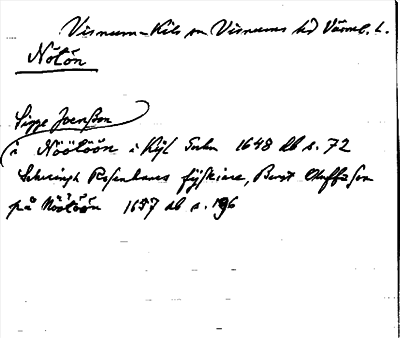 Visnum-Kils sn Visnums hd Värml. l.
Nölön
Sigge Joenßon
i Nöölöön i Kijl Sokn 1648 db s. 72
Rosenbaws fijskiare, Bengt Oluffßon
på Nöölöön 1697 db s. 196